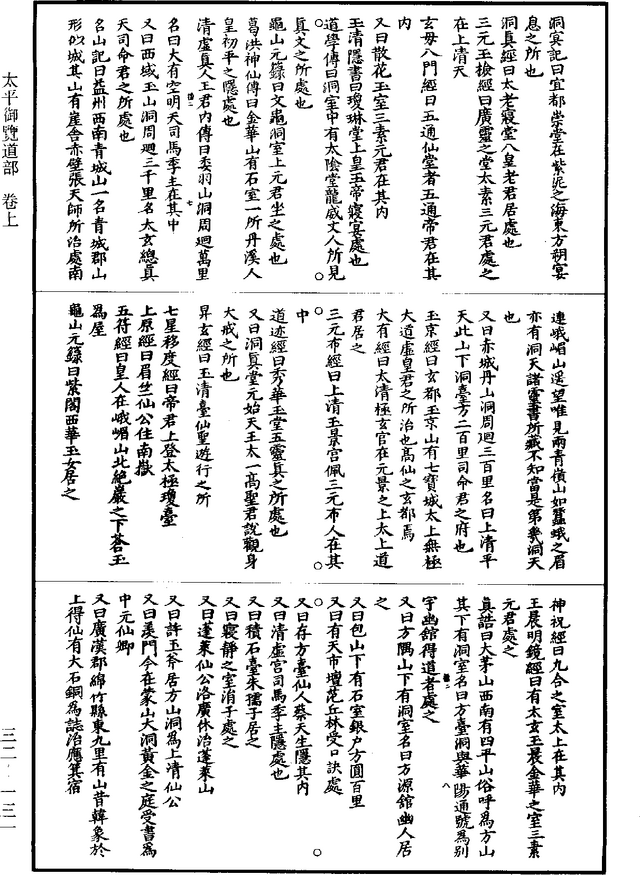 洞冥記曰宜都崇堂在紫泥之海東方朔宴
息之所也
洞真經曰太老寢堂八皇老君居處也
三元玉檢經曰廣靈之堂太素三元君處之
在上清天
玄母八門經曰五通仙堂者五通帝君在其
内
又曰散花玉室三素元君在其内
玉清隱書曰瓊琳堂上皇玉帝寢宴處也
道學傳曰洞室中有太陰堂龍威丈人所見
真文之所處也
龜山元籙曰文龜洞室上元君坐之處也
葛洪神仙傳曰金華山有石室一所丹溪人
皇初平之隱處也
清虛真人王君内傳曰委羽山洞周迴萬里
名曰大有空明天司馬季主在其中
又曰西城玉山洞周迴三千里名太玄總真
天司命君之所處也
名山記曰益州西南青城山一名青城都山
形似城其山有崖舍赤壁張天師所治處南
連峨嵋山遥望唯見兩青嶺山如蠶蛾之眉
亦有洞天諸靈書所藏不知當是第幾洞天
也
又曰赤城丹山洞周迴三百里名曰上清平
天此山下洞臺方二百里司命君之府也
玉京經曰玄都玉京山有七寶城太上無極
大道虛皇君之所治也高仙之玄都焉
大有經曰太清極玄官在元景之上太上道
君居之
三元布經曰上清玉景宫佩三元布人在其
中
道迹經曰秀華玉堂五靈真之所處也
又曰洞真堂元始天王太一高聖君說觀身
大戒之所也
昇玄經曰玉清臺仙聖遊行之所
七星移度經曰帝君上登太極瓊臺
上原經曰眉竺仙公住南嶽
五符經曰皇人在峨嵋山北絶巖之下蒼玉
為屋
龜山元籙曰紫閣西華玉女居之
神祝經曰九合之室太上在其内
玉晨明鏡經曰有太玄玉晨金華之室三素
元君處之
真誥曰大茅山西南有四平山俗呼為方山
其下有洞室名曰方臺洞與華陽通號為別
宇幽館得道者處之
又曰方隅山下有洞室名曰方源館幽人居
之
又曰包山下有石室銀户方圓百里
又曰有天市壇范丘林受口訣處
又曰存方臺仙人蔡天生隱其内
又曰清虛宫司馬季主隱處也
又曰積石臺朱孺子居之
又曰寢靜之室涓子處之
又曰蓬萊仙公洛廣休治蓬萊山
又曰許玉斧居方山洞為上清仙公
又曰羡門今在蒙山大洞黄金之庭受書為
中元仙卿
又曰廣漢郡綿竹縣東九里有山昔韓象於
上得仙有大石銅為誌治應箕宿
太平御覽道部 卷上
三二·一三一